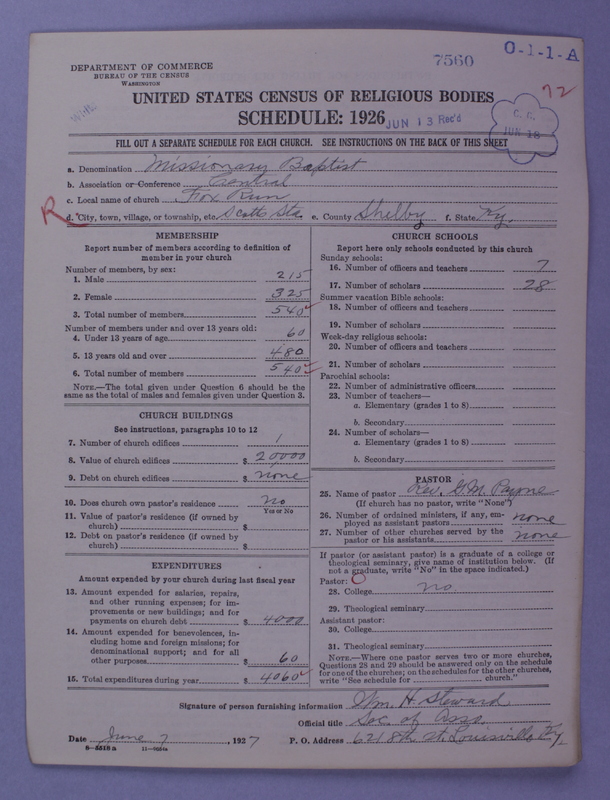 7560
O-1-1-A
72
DEPARTMENT OF COMMERCE
BUREAU OF THE CENSUS
WASHINGTON
UNITED STATES CENSUS OF RELIGIOUS BODIES
SCHEDULE: 1926
JUN 13 Rec'd
JUN 18
FILL OUT A SEPARATE SCHEDULE FOR EACH CHURCH. SEE INSTRUCTIONS ON THE BACK OF THIS SHEET
a. Denomination Missionary Baptist
b. Association or Conference Central
c. Local name of church Fox Run
R
d. City, town, village, or township, etc. Scotts Sta. e. County Shelby f. State Ky.
MEMBERSHIP
Report number of members according to definition of
member in your church
Number of members, by sex:
1. Male 215
2. Female 325
3. Total number of members 540
Number of members under and over 13 years old:
4. Under 13 years of age 60
5. 13 years old and over 480
6. Total number of members 540
NOTE.—The total given under Question 6 should be the
same as the total of males and females given under Question 3.
CHURCH BUILDINGS
See instructions, paragraphs 10 to 12
7. Number of church edifices 1
8. Value of church edifices $ 20000
9. Debt on church edifices $ none
10. Does church own pastor's residence No
Yes or No
11. Value of pastor's residence (if owned by
church) $
12. Debt on pastor's residence (if owned by
church) $
EXPENDITURES
Amount expended by your church during last fiscal year
13. Amount expended for salaries, repairs,
and other running expenses; for im-
provements or new buildings; and for
payments on church debt $ 4000
14. Amount expended for benevolences, in-
cluding home and foreign missions; for
denominational support; and for all
other purposes $ 60
15. Total expenditures during year $ 4060
CHURCH SCHOOLS
Report here only schools conducted by this church
Sunday schools:
16. Number of officers and teachers 7
17. Number of scholars 28
Summer vacation Bible schools:
18. Number of officers and teachers
19. Number of scholars
Week-day religious schools:
20. Number of officers and teachers
21. Number of scholars
Parochial schools:
22. Number of administrative officers
23. Number of teachers—
a. Elementary (grades 1 to 8)
b. Secondary
24. Number of scholars—
a. Elementary (grades 1 to 8)
b. Secondary
PASTOR
25. Name of pastor Rev. G. M. Payne
(If church has no pastor, write "None")
26. Number of ordained ministers, if any, em-
ployed as assistant pastors none
27. Number of other churches served by the
pastor or his assistants none
If pastor (or assistant pastor) is a graduate of a college or
theological seminary, give name of institution below. (If
not a graduate, write "No" in the space indicated.)
Pastor:
28. College no
29. Theological seminary
Assistant pastor:
30. College
31. Theological seminary
NOTE.—Where one pastor serves two or more churches,
Questions 28 and 29 should be answered only on the schedule
for one of the churches; on the schedules for the other churches,
write "See schedule for church."
Signature of person furnishing information Wm. H. Steward
Official title Sec. of Asso.
Date June 7, 1927 P. O. Address 621 8th St. Louisville, Ky.
8-5518 a 11-9054a